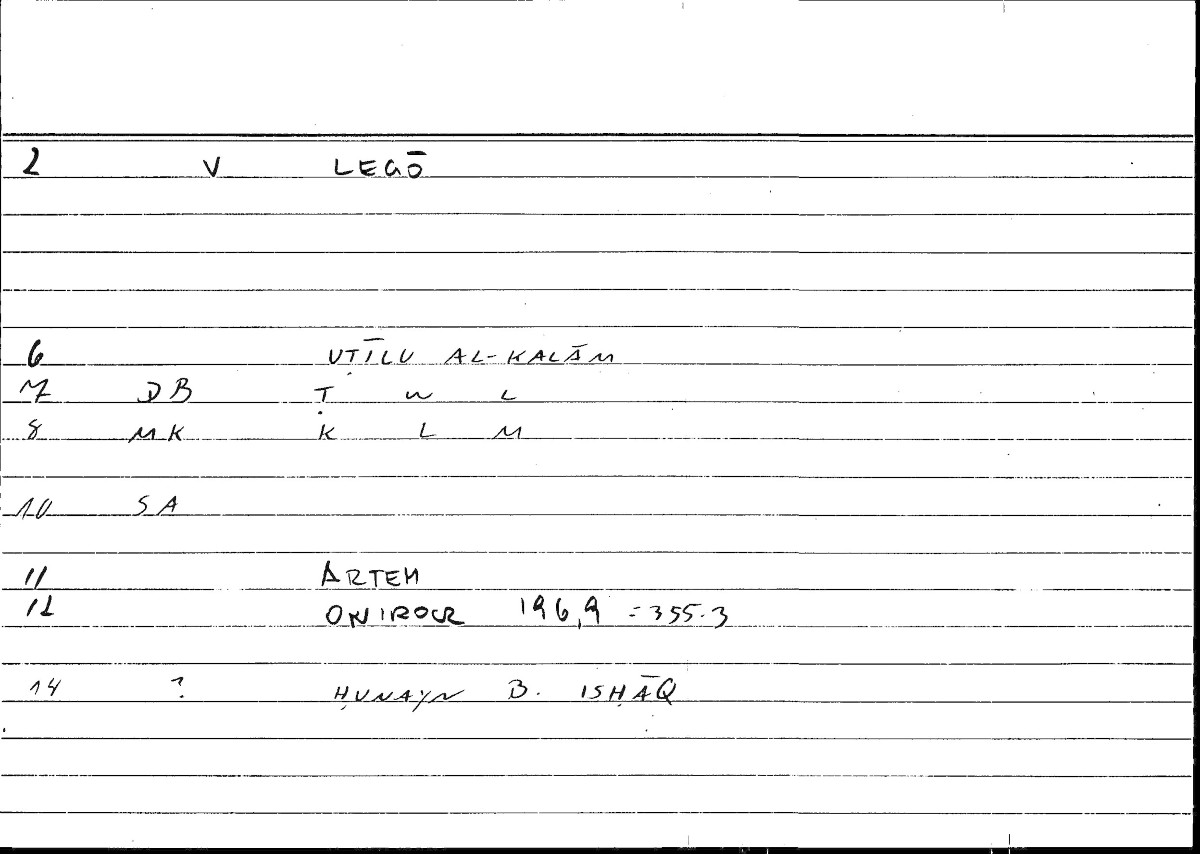 2 V LEGŌ
6 UṬĪLU AL-KALĀM
7 DB Ṭ W L
8 MK K L M
10 SA
11 ARTEM
12 ONIROCR 196,9 = 355.3
14 ? ḤUNAYN B. ISḤĀQ